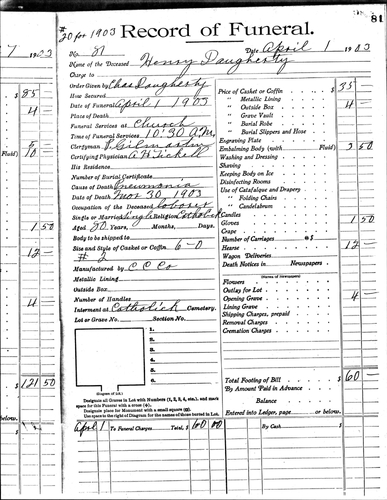 #20 for 1903 Record of Funeral. 81
7 1903
No. 81 Date April 1 1903
Name of the Deceased Henry Daugherty
Charge to
Order Given by Chas Daugherty
How Secured
Date of Funeral April 1 1903
Place of Death
Funeral Services at Church
Time of Funeral Services 10'30 A.M.
Clergyman
Certifying Physician
His Residence
Number of Burial Certificate
Cause of Death Pneumonia
Date of Death Mar 30, 1903
Occupation of the Deceased Laborer
Single or Married Single Religion Catholick
Aged 80 Years, Months, Days.
Body to be shipped to
Size and Style of Casket or Coffin. 6-0
# 2
Manufactured by C C Co
Metallic Lining
Outside Box
Number of Handles
Interment at Catholick Cemetery.
Lot or Grave No. Section No.
1.
2.
3.
4.
5.
6.
(Diagram of lot.)
Designate all Graves in Lot with Numbers (1, 2, 3, 4, etc.), and mark
space for this Funeral with a cross (+).
Designate place for Monument with a small square (□).
Use space to the right of Diagram for the names of those buried in Lot.
April 1 To Funeral Charges Total, $ 60 00
Price of Casket or Coffin $ 35 —
" Metallic Lining
" Outside Box 4 —
" Grave Vault
" Burial Robe
" Burial Slippers and Hose
Engraving Plate
Embalming Body (with Fluid) 3 50
Washing and Dressing
Shaving
Keeping Body on Ice
Disinfecting Rooms
Use of Catafalque and Drapery
" Folding Chairs
" Candelabrum
Candles
Gloves 1 50
Crape
Number of Carriages @$
Hearse 12 —
Wagon Deliveries
Death Notices in Newspapers
(Names of Newspapers)
Flowers
Outlay for Lot
Opening Grave 4 —
Lining Grave
Shipping Charges, prepaid
Removal Charges
Cremation Charges
Total Footing of Bill $ 60 —
By Amount Paid in Advance
Balance
Entered into Ledger, page or below.
By Cash $
$ 85 —
4 —
Fluid) 10
1 50
12 —
4 —
$ 121 50
below.